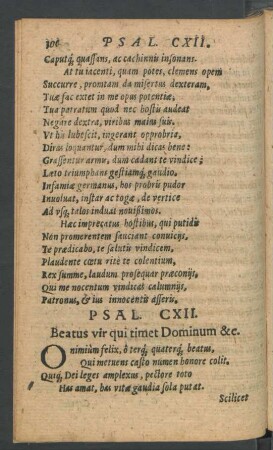 306 PSAL. CXII.
Caputq́, quassans, ac cachinnū insonans.
At tu iacenti, quam potes, clemens opem
Succurre, promtam da misertus dexteram,
Tuæ fac extet in me opus potentiæ,
Tua patratum quod nec hostis audeat
Negare dextra, viribus mains suis.
Vt his lubescit, ingerant opprobria,
Diras inquantur, dum mihi dicas bene:
Grassentur armis, dum cadant te vindice;
Læto triumphans gestiamq́, gaudio,
Infamiæ germanus, hos probrū pudor
Inuoluat, instar ac togæ, de vertice
Ad vsq́, talos indual nouißimos.
Hæc imprecatus hostibus, qui putidis
Non promerentem sauciant conuicijs,
Te prædicabo, te salutis vindicem,
Plaudente cœtu ritè te colentium,
Rex summe, laudum prosequar præconijs,
Qui me nocentum vindicas calumnijs,
Patronus, & ius innocentis asseris.
PSAL. CXII.
Beatus vir qui timet Dominum &c.
O nimiùm felix, ô terq́, quaterq́, beatus,
Qui metuens casto numen honore colit.
Quiq́, Dei leges amplexus, pectore toto
Has amat, has vitæ gaudia sola putat.
Scilicet